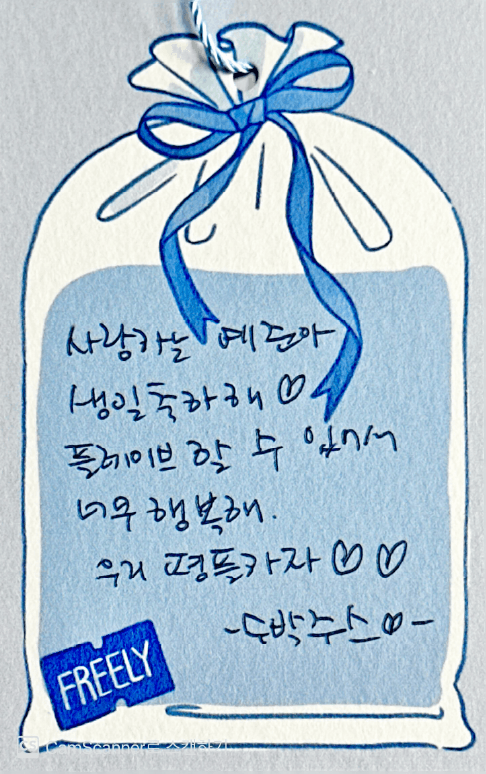 사랑하는 예준아
생일축하해♡
플레이브 할 수 있어서
너무 행복해.
우리 평플하자♡♡
-수박주스♡-
FREELY
CS CamScanner로 스캔하기